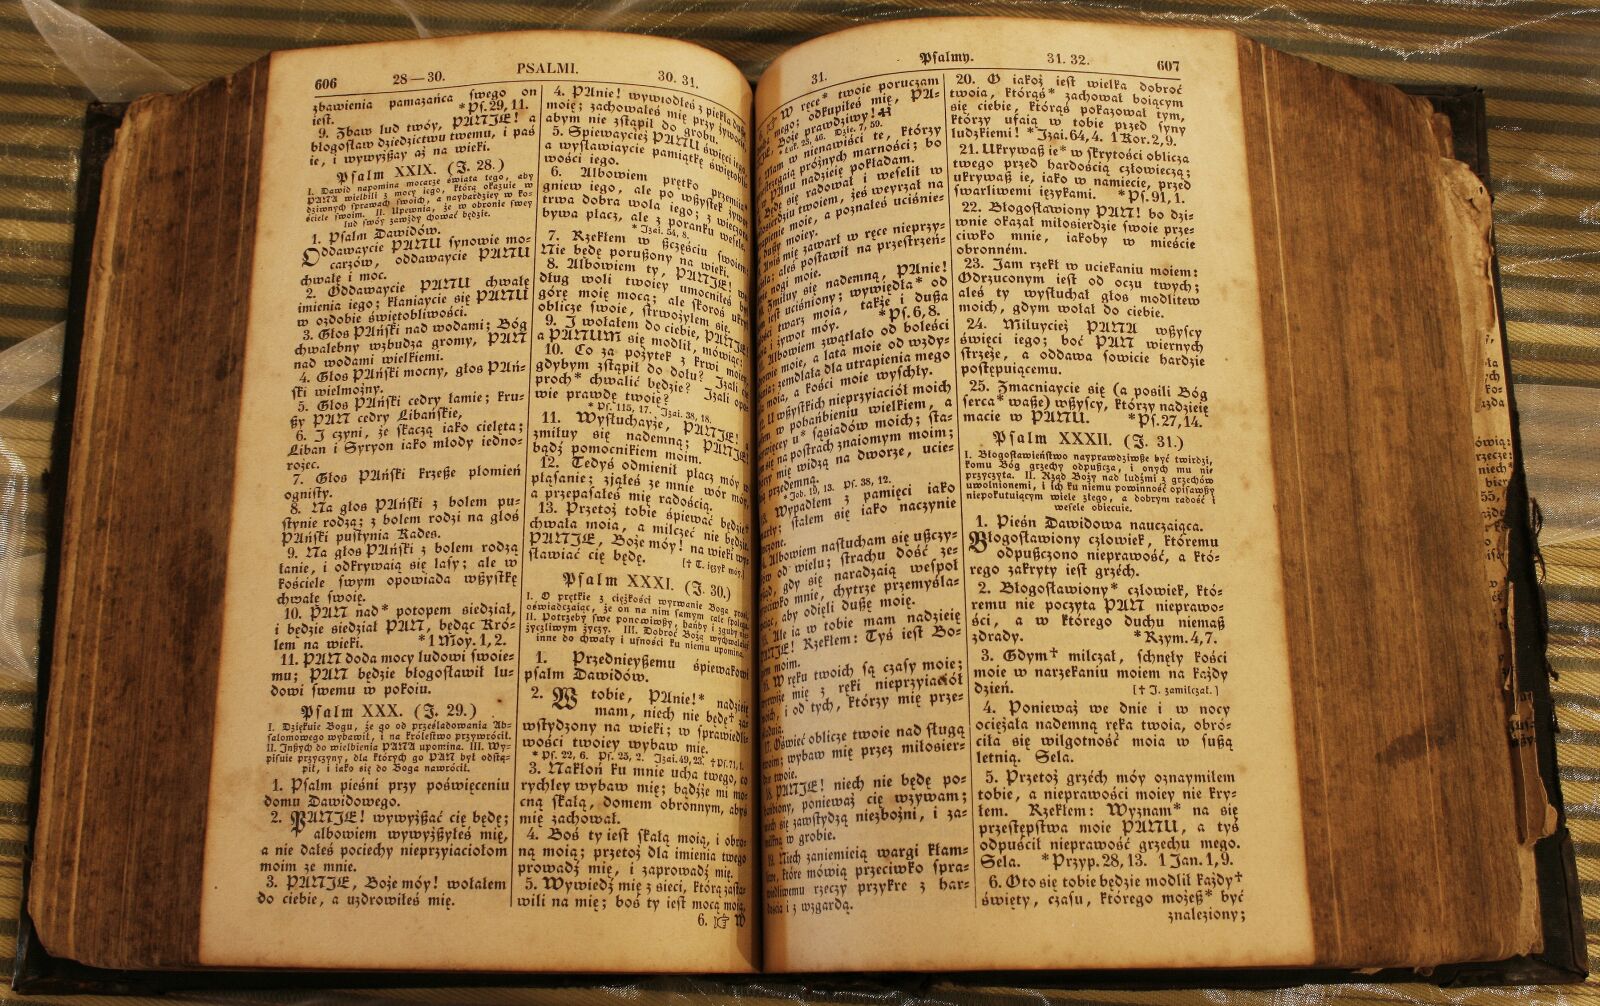 606 28—30. PSALMI. 30. 31.
zbawienia pamazańca swego on
jest. *Ps. 29, 11.
9. Zbaw lud twóy, PANIE! a
błogosław dziedzictwu twemu, i paś
ie, i wywyższay aż na wieki.
Psalm XXIX. (J. 28.)
I. Dawid napomina mocarze świata tego, aby
PANA wielbili z mocy iego, którą okazuie w
dziwnych sprawach swoich, a naybardziey w ko-
ściele swoim. II. Upewnia, że w obronie swey
lud swóy zawżdy chować będzie.
1. Psalm Dawidów.
Oddawaycie PANU synowie mo-
carzów, oddawaycie PANU
chwałę i moc.
2. Oddawaycie PANU chwałę
imienia iego; kłaniaycie się PANU
w ozdobie świętobliwości.
3. Głos PAński nad wodami; Bóg
chwalebny wzbudza gromy, PAN
nad wodami wielkiemi.
4. Głos PAński mocny, głos PAń-
ski wielmożny.
5. Głos PAński cedry łamie; kru-
szy PAN cedry Libańskie,
6. I czyni, że skaczą iako cielęta;
Liban i Syryon iako młody iedno-
rożec.
7. Głos PAński krzesze płomień
ognisty.
8. Na głos PAński z bolem pu-
stynie rodzą; z bolem rodzi na głos
PAński pustynia Kades.
9. Na głos PAński z bolem rodzą
łanie, i odkrywaią się lasy; ale w
kościele swym opowiada wszystkę
chwałę swoię.
10. PAN nad* potopem siedział,
i będzie siedział PAN, będąc Kró-
lem na wieki. *1 Moy. 1, 2.
11. PAN doda mocy ludowi swoie-
mu; PAN będzie błogosławił lu-
dowi swemu w pokoiu.
Psalm XXX. (J. 29.)
I. Dziękuie Bogu, że go od prześladowania Ab-
salomowego wybawił, i na królestwo przywrócił.
II. Inszych do wielbienia PANA upomina. III. Wy-
pisuie przyczyny, dla których go PAN był odstą-
pił, i iako się do Boga nawrócił.
1. Psalm pieśni przy poświęceniu
domu Dawidowego.
2. PANIE! wywyższać cię będę;
albowiem wywyższyłeś mię,
a nie dałeś pociechy nieprzyiaciołom
moim ze mnie.
3. PANIE, Boże móy! wołałem
do ciebie, a uzdrowiłeś mię.
4. PAnie! wywiodłeś z piekła duszę
moię; zachowałeś mię przy żywocie,
abym nie zstąpił do grobu.
5. Spiewaycież PANU święci iego,
a wysławiaycie pamiątkę świętobli-
wości iego.
6. Albowiem prętko przemija
gniew iego, ale po wszystek żywot
trwa dobra wola iego; z wieczora
bywa płacz, ale z poranku wesele.
* Izai. 54, 8.
7. Rzekłem w szczęściu swoiem:
Nie będę poruszony na wieki.
8. Albowiem ty, PANIE! we-
dług woli twoiey umocniłeś był
górę moię mocą; ale skoroś ukrył
oblicze swoie, strwożyłem się.
9. I wołałem do ciebie, PANIE!
a PANUM się modlił, mówiąc:
10. Co za pożytek z krwi moiey,
gdybym zstąpił do dołu? Izali cię
proch* chwalić będzie? Izali opo-
wie prawdę twoię?
* Ps. 115, 17. Izai. 38, 18.
11. Wysłuchayże, PANIE! a
zmiłuy się nademną; PANIE!
bądź pomocnikiem moim.
12. Tedyś odmienił płacz móy w
pląsanie; zjąłeś ze mnie wór móy,
a przepasałeś mię radością.
13. Przetoż tobie śpiewać będzie†
chwała moia, a milczeć nie będzie.
PANIE, Boże móy! na wieki wy-
sławiać cię będę. [† T. ięzyk móy.]
Psalm XXXI. (J. 30.)
I. O prętkie z ciężkości wyrwanie Boga prosi,
oświadczaiąc, że on na nim samym całe spolega.
II. Potrzeby swe ponowiwszy, hańby i zguby nie-
życzliwym życzy. III. Dobroć Bożą wychwalaiąc
inne do chwały i ufności ku niemu upomina.
1. Przednieyszemu śpiewakowi
psalm Dawidów.
2. W tobie, PAnie!* nadzieię
mam, niech nie będę† za-
wstydzony na wieki; w sprawiedli-
wości twoiey wybaw mię.
* Ps. 22, 6. Ps. 25, 2. Izai. 49, 23. † Ps. 71, 1.
3. Nakłoń ku mnie ucha twego, co
rychley wybaw mię; bądźże mi mo-
cną skałą, domem obronnym, abyś
mię zachował.
4. Boś ty iest skałą moią, i obro-
ną moią; przetoż dla imienia twego
prowadź mię, i zaprowadź mię.
5. Wywiedź mię z sieci, którą zasta-
wili na mię; boś ty iest mocą moią.
6. ☞ W
31. Psalmy. 31. 32. 607
W ręce* twoie poruczam
mego; odkupiłeś mię, PA-
Boże prawdziwy!
* Luk. 23, 46. Dzie. 7, 59.
w nienawiści te, którzy
próżnych marności; bo
PAnu nadzieię pokładam.
Będę się radował i weselił w
twoiem, żeś weyrzał na
moie, a poznałeś uciśnie-
duszy moiey.
mię zawarł w ręce nieprzy-
aleś postawił na przestrzeń-
nogi moie.
Zmiłuy się nademną, PAnie!
iest uciśniony; wywiędła* od
twarz moia, także i dusza
żywot móy. *Ps. 6, 8.
Albowiem zwątlało od boleści
moie, a lata moie od wzdy-
zemdlała dla utrapienia mego
moia, a kości moie wyschły.
U wszystkich nieprzyiaciół moich
w pohańbieniu wielkiem, a
u* sąsiadów moich; sta-
się na postrach znaiomym moim;
mię widzą na dworze, ucie-
przedemną.
* Job. 19, 13. Ps. 38, 12.
Wypadłem z pamięci iako
stałem się iako naczynie
Albowiem nasłucham się uszczy-
od wielu; strachu dość ze-
gdy się naradzaią wespół
mnie, chytrze przemyśla-
aby odięli duszę moię.
Ale ia w tobie mam nadzieię
PANIE! Rzekłem: Tyś iest Bo-
moim.
W ręku twoich są czasy moie;
mię z ręki nieprzyiaciół
i od tych, którzy mię prze-
17. Oświeć oblicze twoie nad sługą
wybaw mię przez miłosier-
twoie.
18. PANIE! niech nie będę po-
ponieważ cię wzywam;
się zawstydzą niezbożni, i za-
w grobie.
19. Niech zaniemieią wargi kłam-
które mówią przeciwko spra-
rzeczy przykre z har-
i z wzgardą.
20. O iakoż iest wielka dobroć
twoia, którąś* zachował boiącym
się ciebie, którąś pokazował tym,
którzy ufaią w tobie przed syny
ludzkiemi! * Izai. 64, 4. 1 Kor. 2, 9.
21. Ukrywasz ie* w skrytości oblicza
twego przed hardością człowieczą;
ukrywasz ie, iako w namiecie, przed
swarliwemi ięzykami. *Ps. 91, 1.
22. Błogosławiony PAN! bo dzi-
wnie okazał miłosierdzie swoie prze-
ciwko mnie, iakoby w mieście
obronném.
23. Jam rzekł w uciekaniu moiem:
Odrzuconym iest od oczu twych;
aleś ty wysłuchał głos modlitew
moich, gdym wołał do ciebie.
24. Miłuycież PANA wszyscy
święci iego; boć PAN wiernych
strzeże, a oddawa sowicie hardzie
postępuiącemu.
25. Zmacniaycie się (a posili Bóg
serca* wasze) wszyscy, którzy nadzieię
macie w PANU. *Ps. 27, 14.
Psalm XXXII. (J. 31.)
I. Błogosławieństwo nayprawdziwsze być twierdzi,
komu Bóg grzechy odpuszcza, i onych mu nie
przyczyta. II. Rząd Boży nad ludźmi z grzechów
uwolnionemi, i ich ku niemu powinność opisawszy
niepokutuiącym wiele złego, a dobrym radość i
wesele obiecuie.
1. Pieśń Dawidowa nauczaiąca.
Błogosławiony człowiek, któremu
odpuszczono nieprawość, a któ-
rego zakryty iest grzéch.
2. Błogosławiony* człowiek, któ-
remu nie poczyta PAN nieprawo-
ści, a w którego duchu niemasz
zdrady. *Rzym. 4, 7.
3. Gdym† milczał, schnęły kości
moie w narzekaniu moiem na każdy
dzień. [† J. zamilczał.]
4. Ponieważ we dnie i w nocy
ociężała nademną ręka twoia, obró-
ciła się wilgotność moia w suszą
letnią. Sela.
5. Przetoż grzéch móy oznaymiłem
tobie, a nieprawości moiey nie kry-
łem. Rzekłem: Wyznam* na się
przestępstwa moie PANU, a tyś
odpuścił nieprawość grzechu mego.
Sela. *Przyp. 28, 13. 1 Jan. 1, 9.
6. Oto się tobie będzie modlił każdy†
święty, czasu, którego możesz* być
znaleziony;